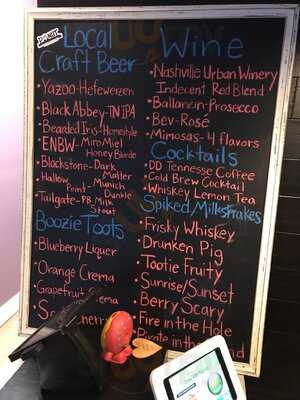 Local
Craft Beer
Yazoo-Hefeweizen
Black Abbey-TN IPA
Bearded Iris-Homestyle
ENBW-Miro Miel
Honey Blonde
Blackstone-Dark
Matter
Hallow Munich
Point- Dunkle
Tailgate-PB Milk
Stout
Boozie Toots
Blueberry Liquer
Orange Crema
Grapefruit
Cherry
Wine
Nashville Urban Winery
Indecent Red Blend
Ballancin-Prosecco
Bev-Rosé
Mimosas-4 flavors
Cocktails
DD Tennesse Coffee
Cold Brew Cocktail
Whiskey Lemon Tea
Spiked Milkshakes
Frisky Whiskey
Drunken Pig
Tootie Fruity
Sunrise/Sunset
Berry Scary
Fire in the Hole
Pirate in the